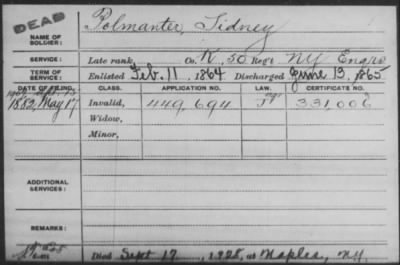 DEAD
NAME OF SOLDIER: Polmanter, Sidney
SERVICE: Late rank Co. K, 50 Reg't NY Engrs
TERM OF SERVICE: Enlisted Feb. 11 1864 Discharged June 13, 1865
DATE OF FILING. CLASS. APPLICATION NO. LAW. CERTIFICATE NO.
1882, May 17 Invalid, 449,694 331,006
Widow,
Minor,
ADDITIONAL SERVICES:
REMARKS:
Died Sept 17, 1925, at Maples, N.Y.